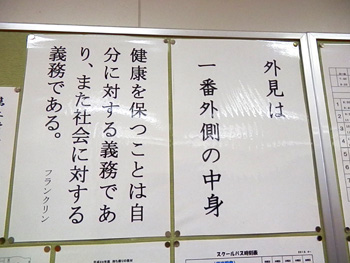 外見は
一番外側の中身
健康を保つことは自
分に対する義務であ
り、また社会に対する
義務である。
フランクリン
スクールバス時刻表